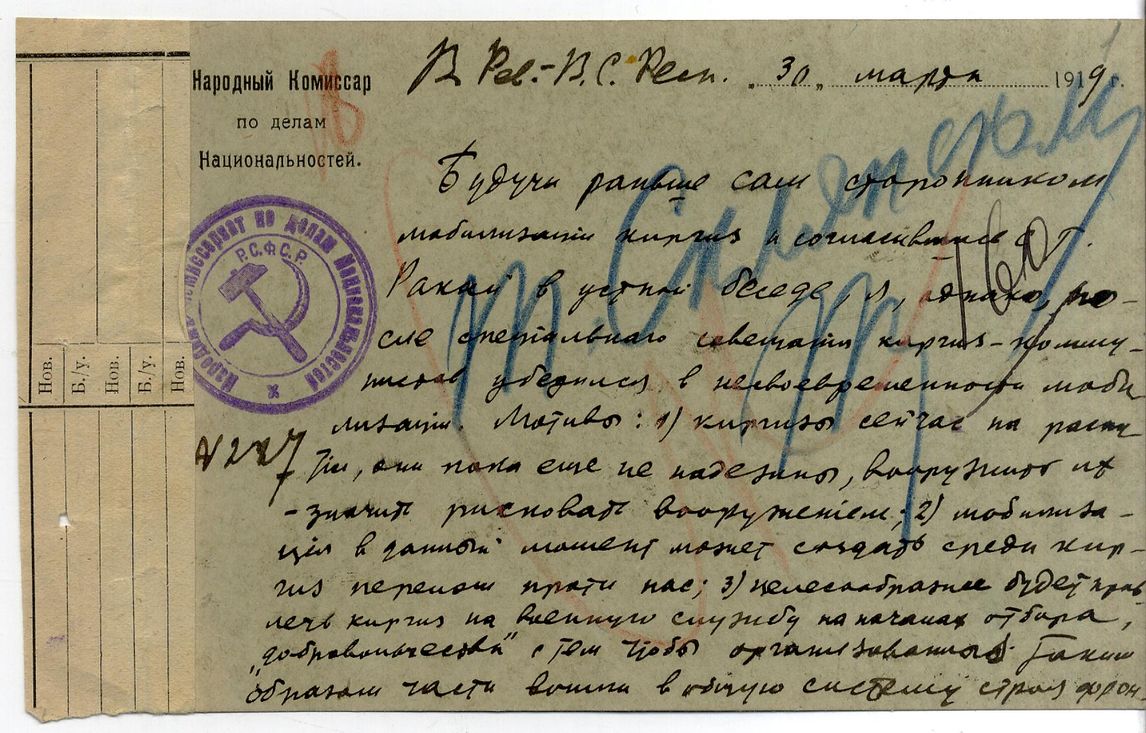 Нов.
Б./у.
Нов.
Б./у.
Нов.
Народный Комиссар
по делам
Национальностей.
Народный Комиссариат по делам Национальностей
Р.С.Ф.С.Р.
В Рев.-В.С. Респ. „30„ марта 1919 г.
т. Склянскому
Будучи раньше сам сторонником
мобилизации киргиз и согласившись с т.
в устной беседе, я, однако, по-
сле специального совещания киргиз-комму-
нистов убедился в несвоевременности моби
лизации. Мотивы: 1) киргизы сейчас на распу-
тьи, они пока еще не надежны, вооружить их
- значит рисковать вооружением; 2) мобилиза-
ция в данный момент может создать среди кир-
гиз перелом против нас; 3) целесообразнее будет прив
лечь киргиз на военную службу на началах отбора,
„добровольчества" с тем чтобы организованные таким
образом части вошли в общую систему строя фрон-
N 227